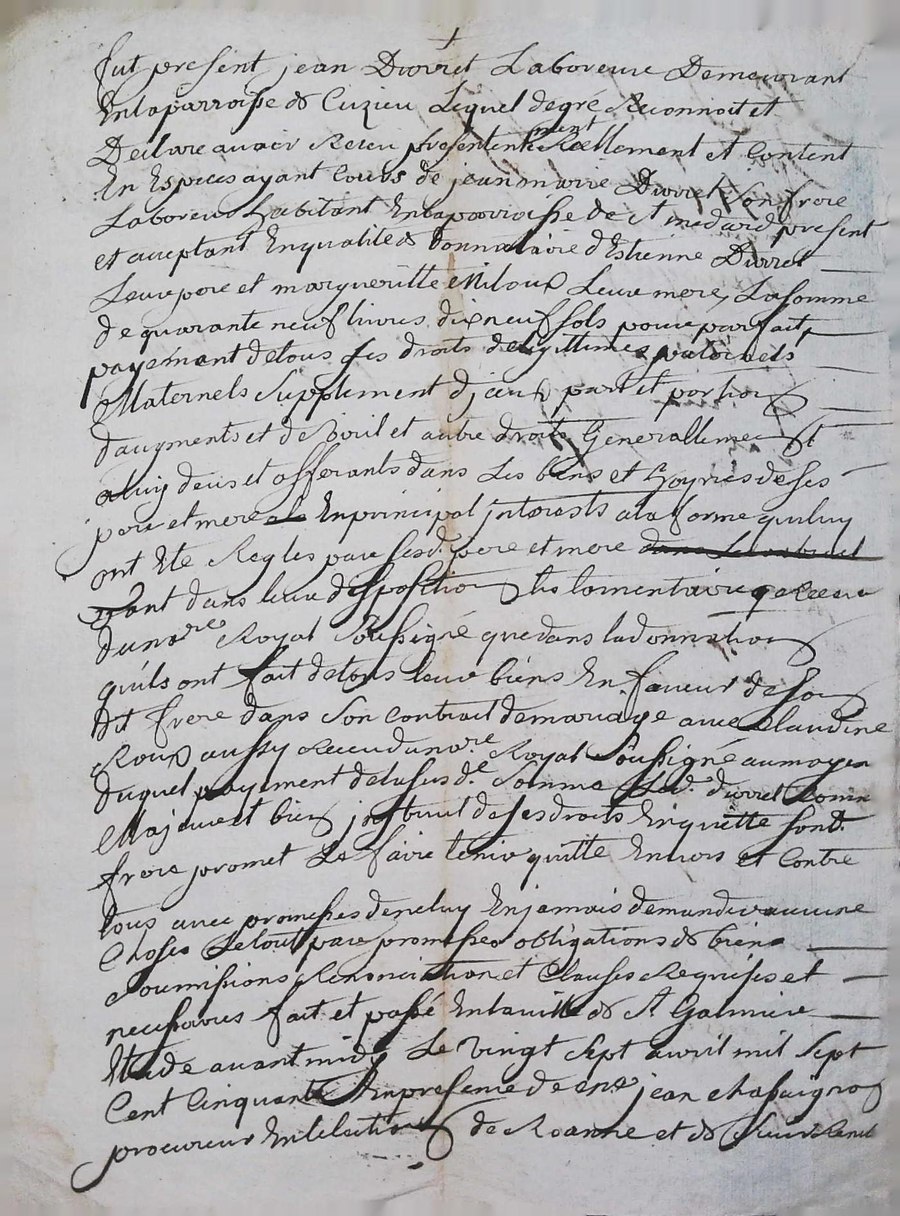 +
fut present jean Durret Laboreur Demeurant
En laparroisse de Cuzieu Lequel degré Reconnoit et
Declare avoir Receu presentement Reellement et Content
En Especes ayant Cours de jean marie Durret Son frere
Laboreur habitant En laparroisse de st medard present
et acceptant Enqualité de Donnataire d'Estienne Durret
Leur pere et margueritte Leur mere, La somme
de quarante neuf livres dix neuf sols pour parfait
payemant detous ses droits delegittimes paternels
Maternels Supplement d'jceux part et portion
daugments et de et autre droits Generallement
aluy deus et afferants dans Les biens et hoyries deses
pere et mere Enprincipal jnterests ala forme quiluy
ont Eté Regles par sesd. pere et mere dans Le contrat
dans leur disposition testamentaire Receue
dunore Royal Soussigné que dans ladonnation
quils ont fait detous leur biens En faveur de son
dit frere dans Son contrat demariage avec Claudine
Roux aussy Receu dunore Royal Soussigné aumoyen
duquel payement delasusde Somme Led. durret Comme
Majeur et bien jnstruit desesdroits Enquitte sond.
frere promet Le faire tenir quitte Envers et Contre
tous avec promesses deneluy Enjamais demander aucune
Choses Letout par promesses obligations de biens
Soumissions Renonciation et Clauses Requises et
necessaires fait et passé Enlaville de St Galmier
Etude avant midy Le vingt Sept avril mil Sept
Cent Cinquante Enpresence de jean chassaignon
procureur En lelection de Roanne et de Sieur